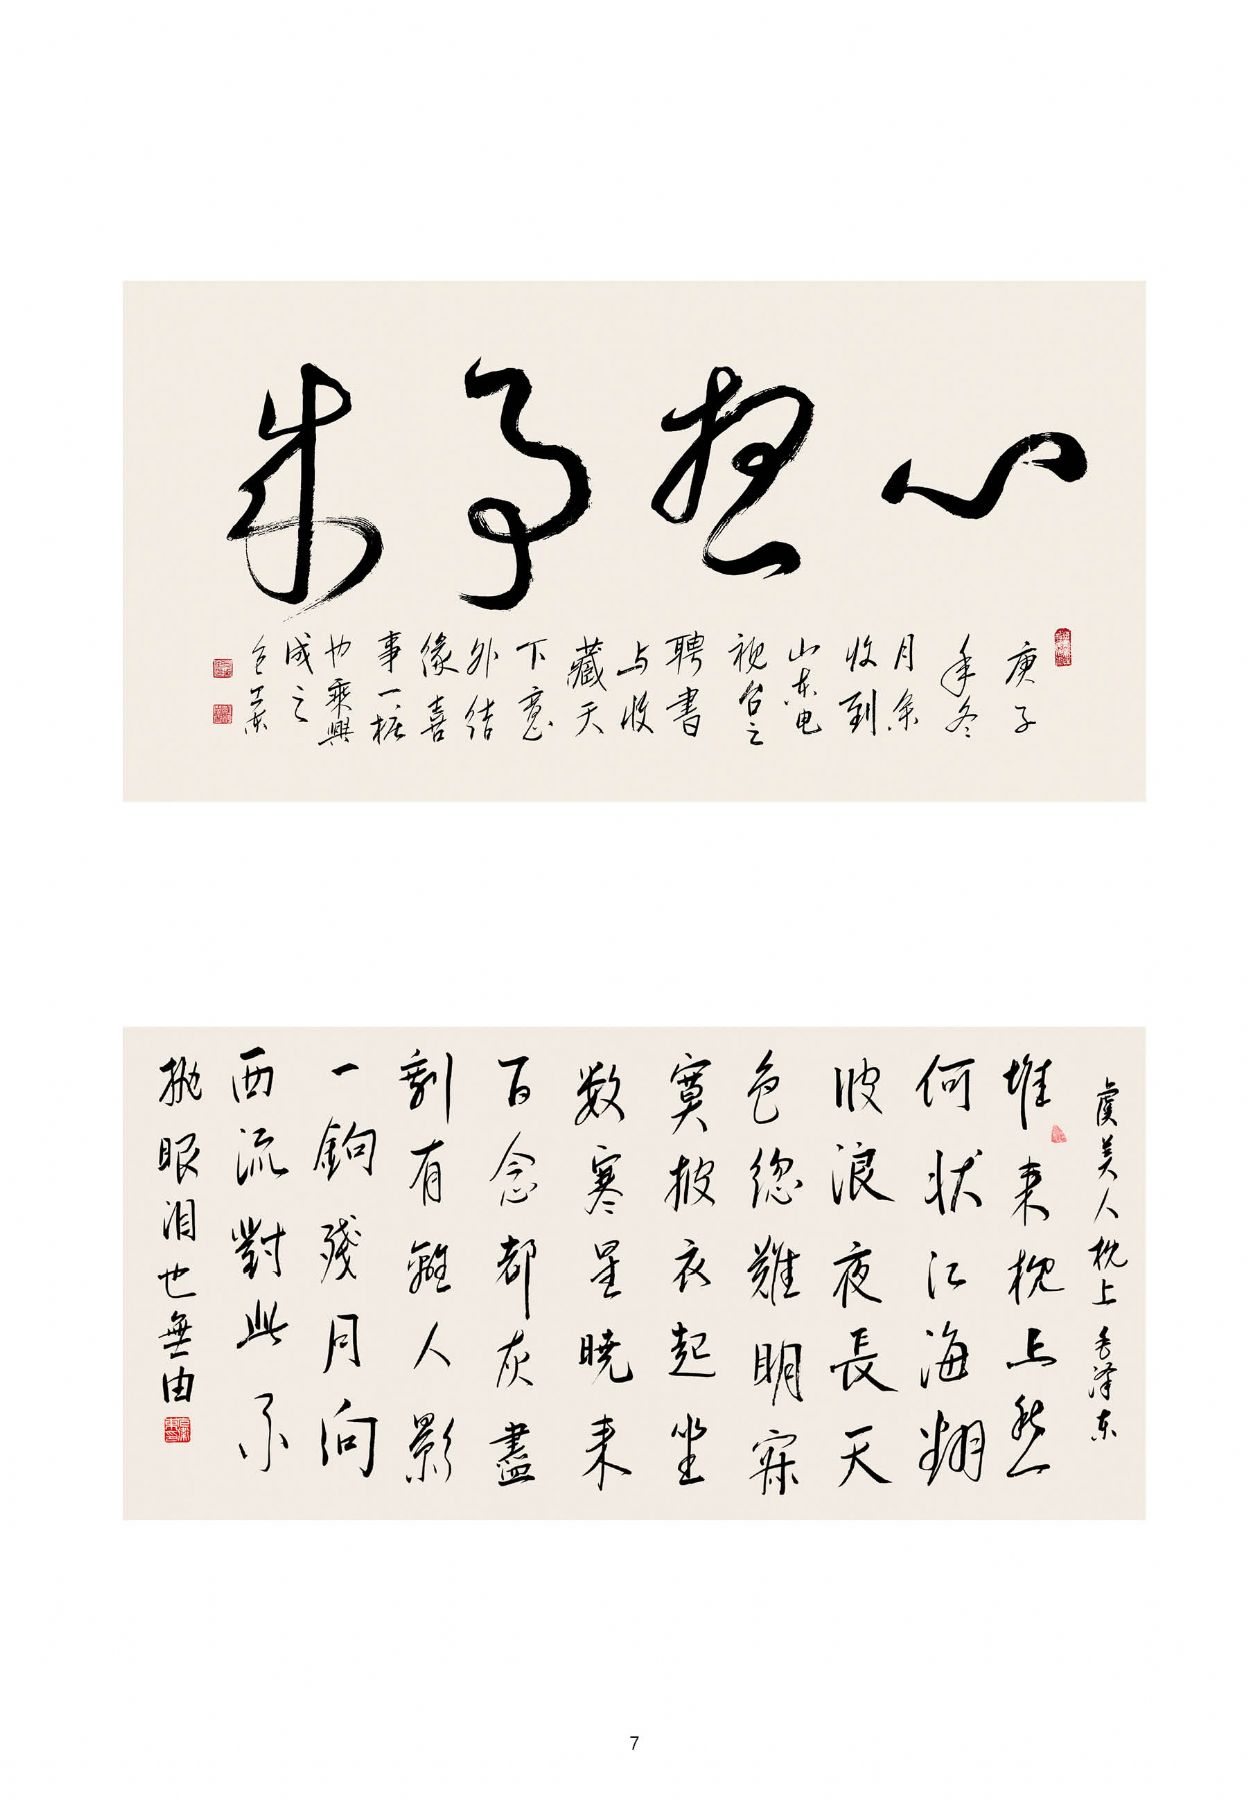 心想事成
庚子
年冬
月余
收到
山东电
视台之
聘书
与收
藏天
下意
外结
缘喜
事一桩
也乘興
成之
虞美人枕上 毛泽东
堆来枕上愁
何状江海翻
波浪夜長天
色總難明寂
寞披衣起坐
数寒星曉来
百念都灰盡
剩有離人影
一鉤殘月向
西流對此不
抛眼泪也無由
7